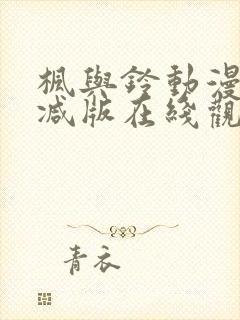 楓與鈴動漫
减版在綫觀
青衣